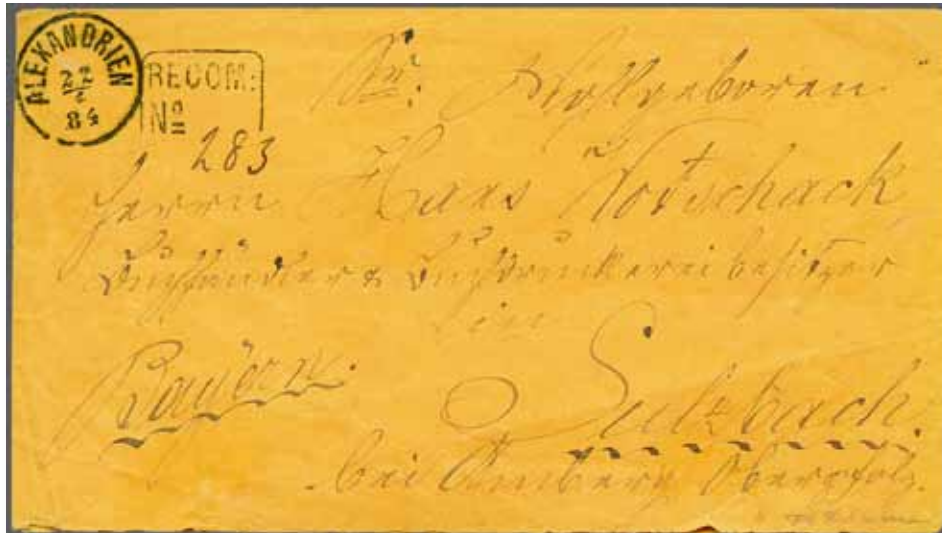 ALEXANDRIEN
22
84
RECOM:
Nº
283
Sr. Wohlgeboren
Herrn Hans Notschack
Buchhändler & Buchdruckereibesitzer
in
Bayern. Sulzbach.
bei Amberg Oberpfalz.